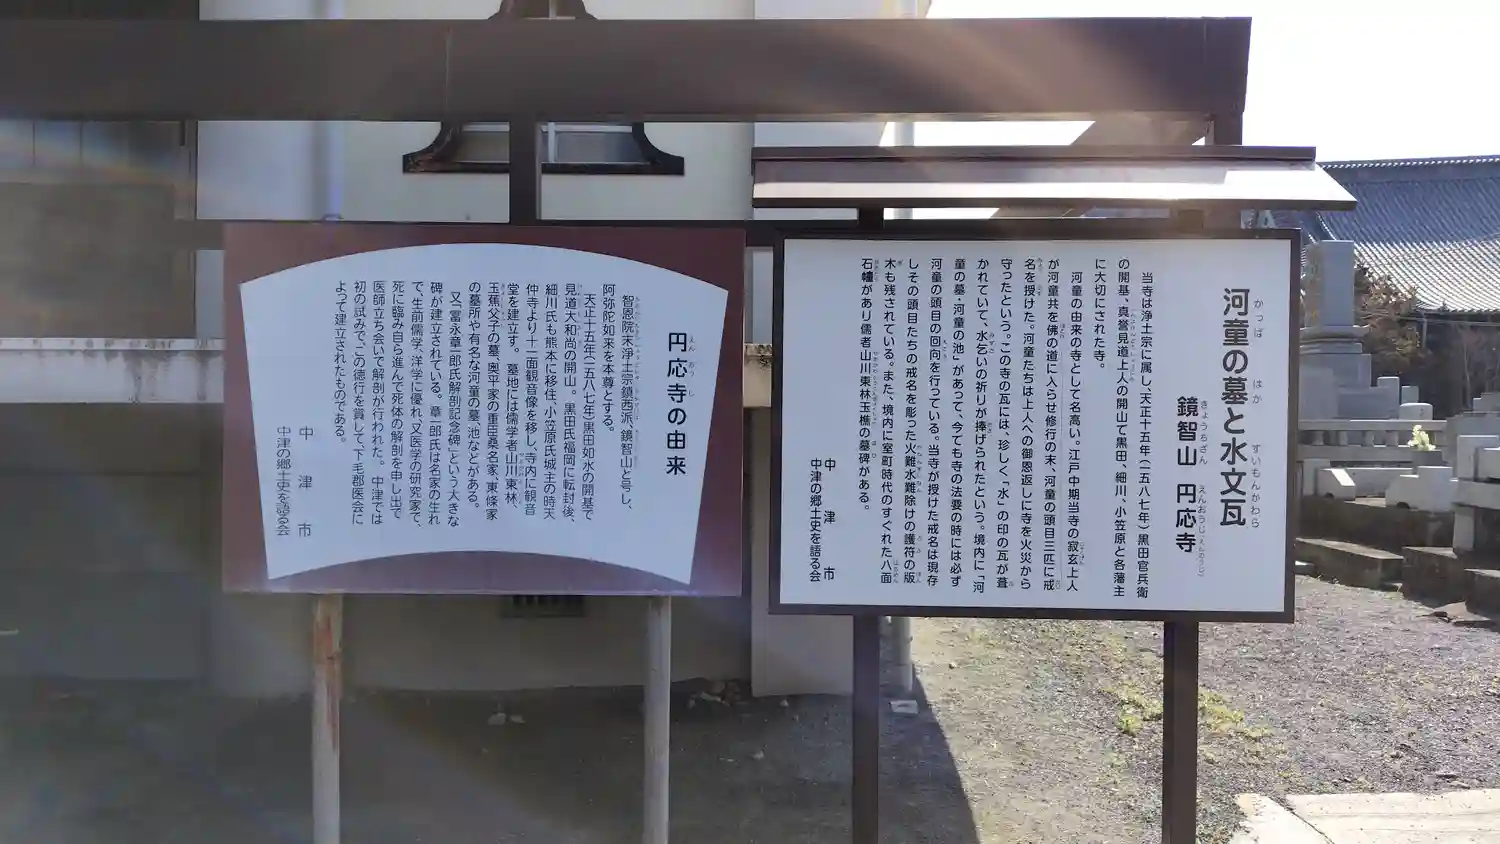 河童の墓と水文瓦
かっぱ はか すいもんかわら
鏡智山 円応寺
きょうちざん えんおうじ(えんのうじ)
当寺は浄土宗に属し、天正十五年(一五八七年)黒田官兵衛
の開基、真誉見道上人の開山で黒田、細川、小笠原と各藩主
に大切にされた寺。
河童の由来の寺として名高い。江戸中期当寺の寂玄上人
が河童共を佛の道に入らせ修行の末、河童の頭目三匹に戒
名を授けた。河童たちは上人への御恩返しに寺を火災から
守ったという。この寺の瓦には、珍しく「水」の印の瓦が葺
かれていて、水乞いの祈りが捧げられたという。境内に「河
童の墓・河童の池」があって、今でも寺の法要の時には必ず
河童の頭目の回向を行っている。当寺が授けた戒名は現存
しその頭目たちの戒名を彫った火難水難除けの護符の版
木も残されている。また、境内に室町時代のすぐれた八面
石幢があり儒者山川東林玉樵の墓碑がある。
中津市
中津の郷土史を語る会
円応寺の由来
えんおうじ
智恩院末浄土宗鎮西派、鏡智山と号し、
阿弥陀如来を本尊とする。
天正十五年(一五八七年)黒田如水の開基で
見道大和尚の開山。黒田氏福岡に転封後、
細川氏も熊本に移住、小笠原氏城主の時天
仲寺より十一面観音像を移し、寺内に観音
堂を建立す。墓地には儒学者山川東林、
玉蕉父子の墓、奥平家の重臣桑名家、東條家
の墓所や有名な河童の墓、池などがある。
又「冨永章一郎氏解剖記念碑」という大きな
碑が建立されている。章一郎氏は名家の生れ
で、生前儒学・洋学に優れ、又医学の研究家で、
死に臨み自ら進んで死体の解剖を申し出で
医師立ち会いで解剖が行われた。中津では
初の試みで、この徳行を賞して、下毛郡医会に
よって建立されたものである。
中津市
中津の郷土史を語る会